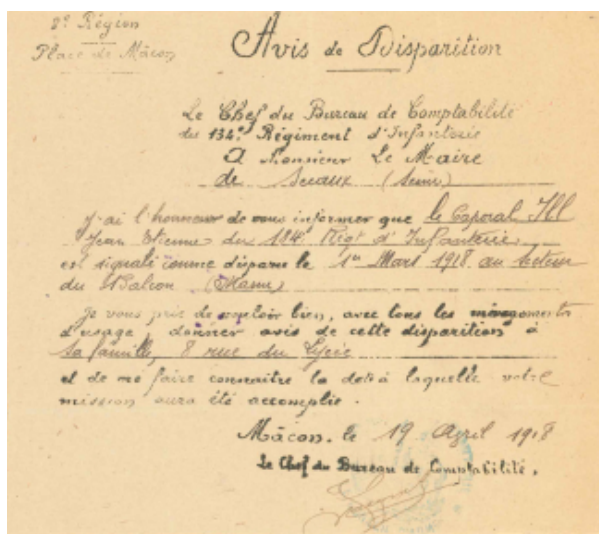 8e Région
Place de Mâcon
Avis de Disparition
Le Chef du Bureau de Comptabilité
du 134e Régiment d'Infanterie
A Monsieur Le Maire
de Sceaux (Seine)
J'ai l'honneur de vous informer que le Caporal Ill
Jean Etienne du 134e Régt d'Infanterie
est signalé comme disparu le 1er Mars 1918 au secteur
du Balcon (Marne)
Je vous prie de vouloir bien, avec tous les ménagements
d'usage, donner avis de cette disparition à
sa famille, 8 rue du Lycée
et de me faire connaître la date à laquelle votre
mission aura été accomplie.
Mâcon, le 19 Avril 1918
Le Chef du Bureau de Comptabilité,